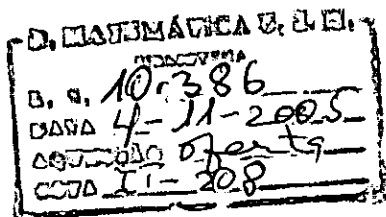 D. MATEMÁTICA U. L. M.
BIBLIOTECA
B. O. 10.386
DATA 4-11-2005
AQUISIÇÃO Oferta
COTA II-208